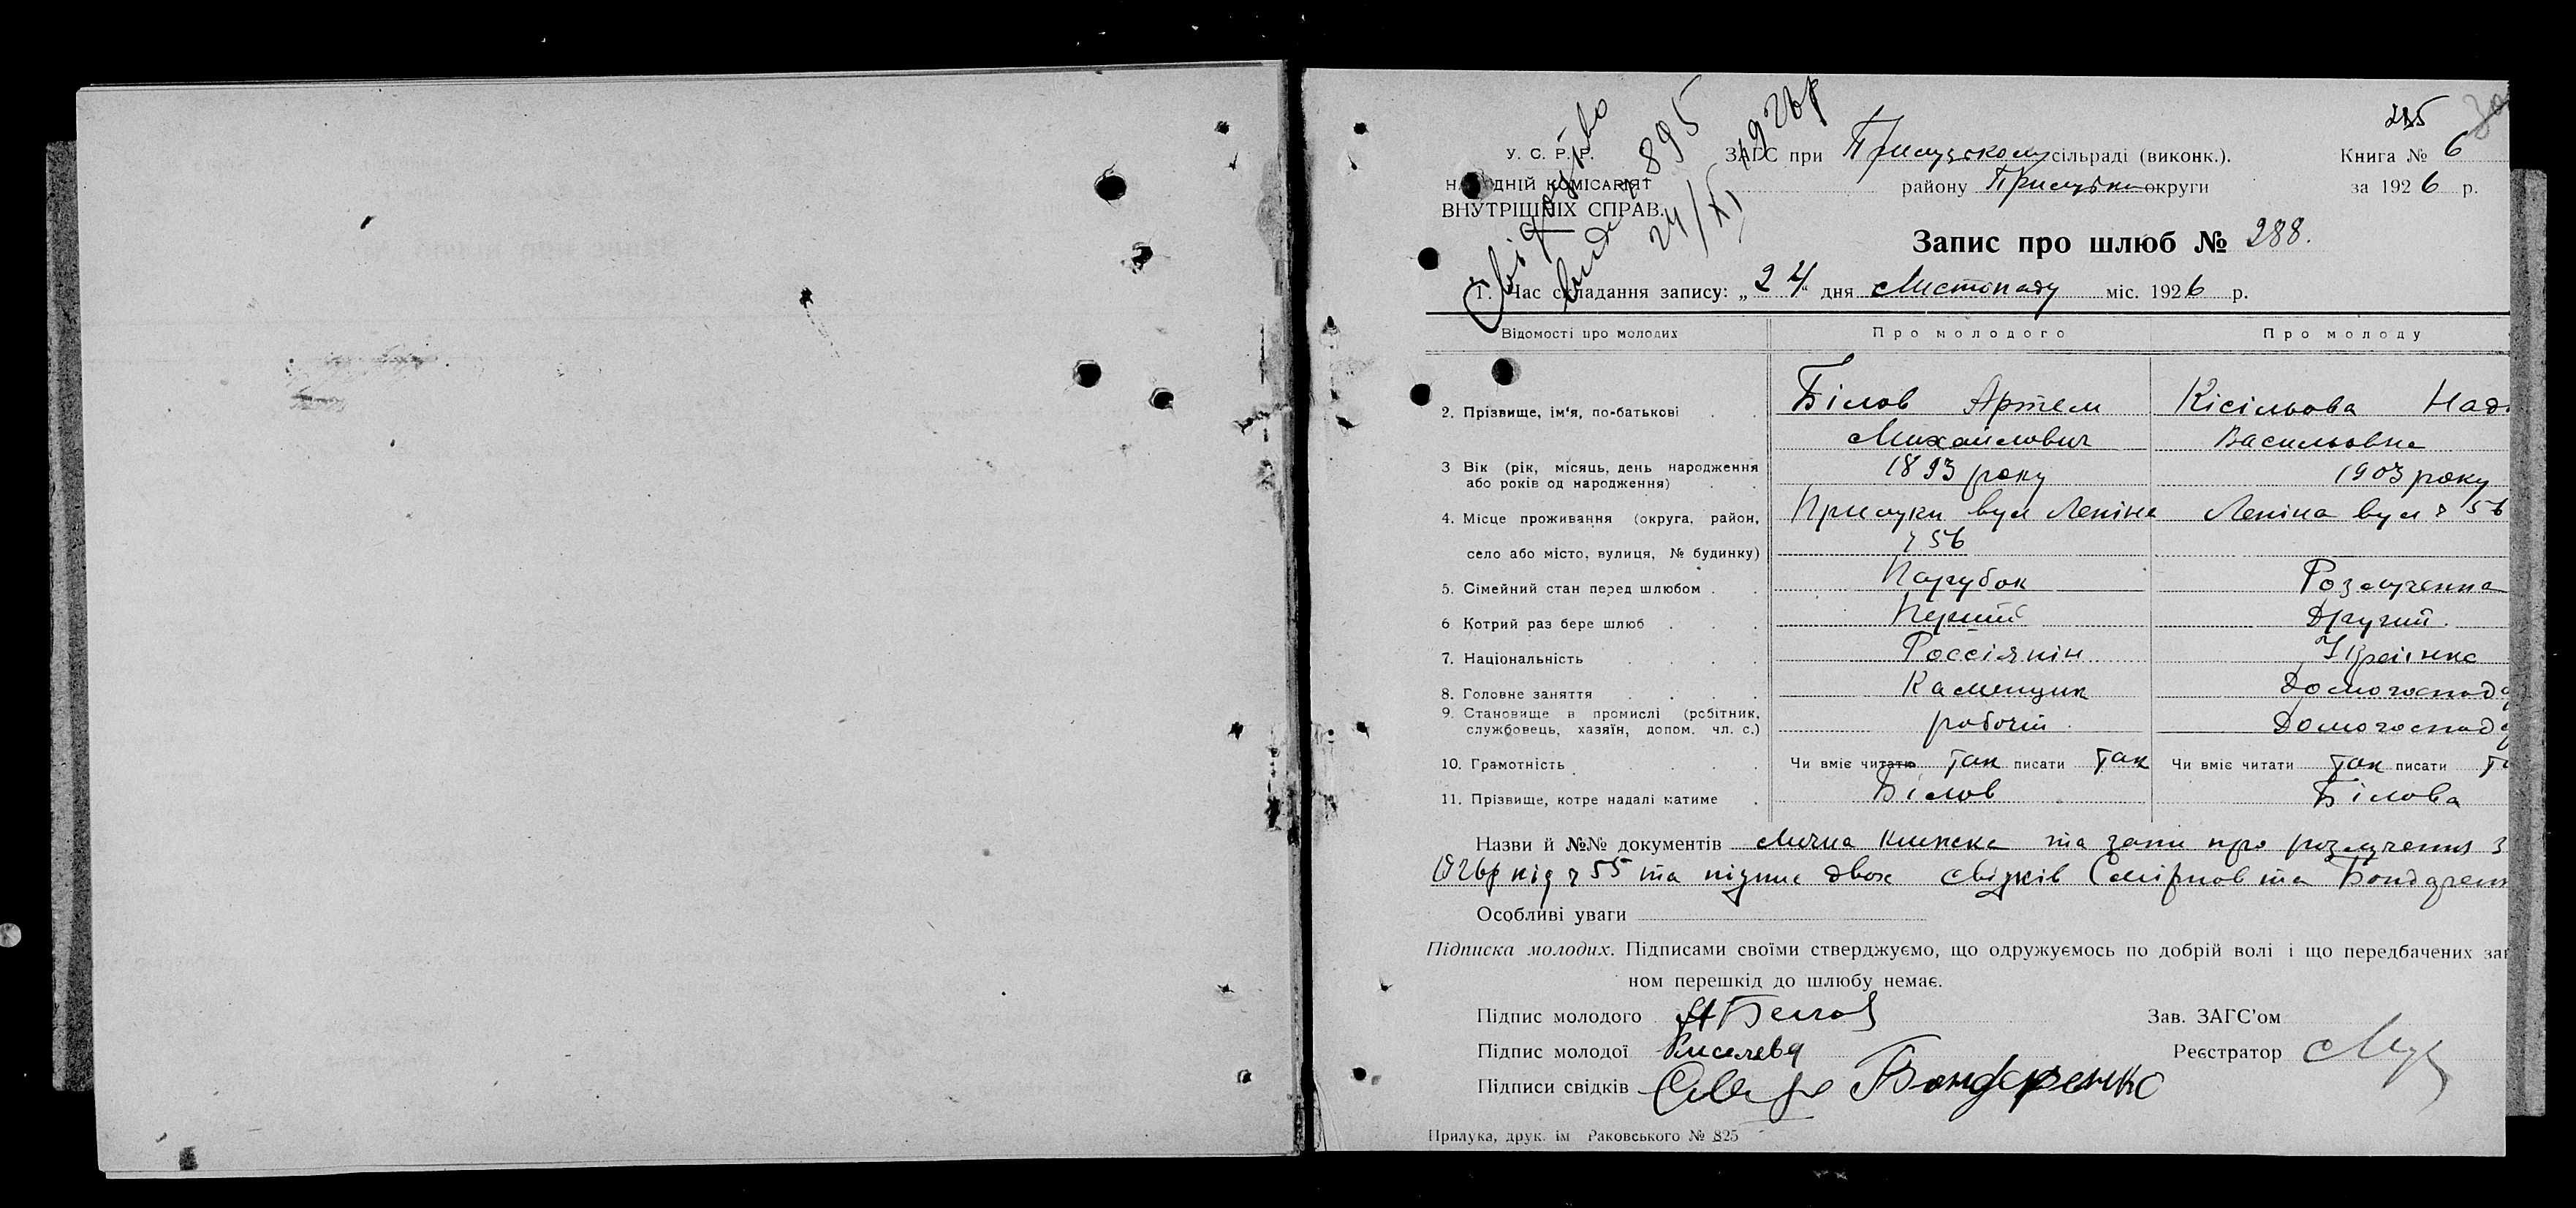 285
Свідоцтво
видано ч 895
24/XI 1926 р
У. С. Р. Р.
НАРОДНІЙ КОМІСАРІЯТ
ВНУТРІШНІХ СПРАВ.
ЗАГС при Прилуцкому сільраді (виконк.).
району Прилуцькі округи
Книга № 6
за 1926 р.
Запис про шлюб № 288.
1. Час складання запису: „24“ дня Листопаду міс. 1926 р.
Відомості про молодих Про молодого Про молоду
2. Прізвище, ім'я, по-батькові Білов Артем Кісільова Над
Михайлович Васильовна
3 Вік (рік, місяць, день народження 1893 року 1903 року
або років од народження)
4. Місце проживання (округа, район, Прилуки вул Леніна Леніна вул ч 56
село або місто, вулиця, № будинку) ч 56
5. Сімейний стан перед шлюбом Парубок Розлученна
6 Котрий раз бере шлюб Перший Другий.
7. Національність Россіянін Українка
8. Головне заняття Каменщик Домогоспода
9. Становище в промислі (робітник, робочій Домогоспода
службовець, хазяїн, допом. чл. с.)
10. Грамотність Чи вміє читати так писати так Чи вміє читати так писати та
11. Прізвище, котре надалі матиме Білов Білова
Назви й №№ документів Лична книжка та запис про розлучення з
1926р під ч 55 та підпис двох свідків Смірнов та Бондарен
Особливі уваги
Підписка молодих. Підписами своїми стверджуємо, що одружуємось по добрій волі і що передбачених зак
ном перешкід до шлюбу немає.
Підпис молодого А Белов Зав. ЗАГС'ом
Підпис молодої Киселева Реєстратор
Підписи свідків Бондаренко
Прилука, друк. ім Раковського № 825